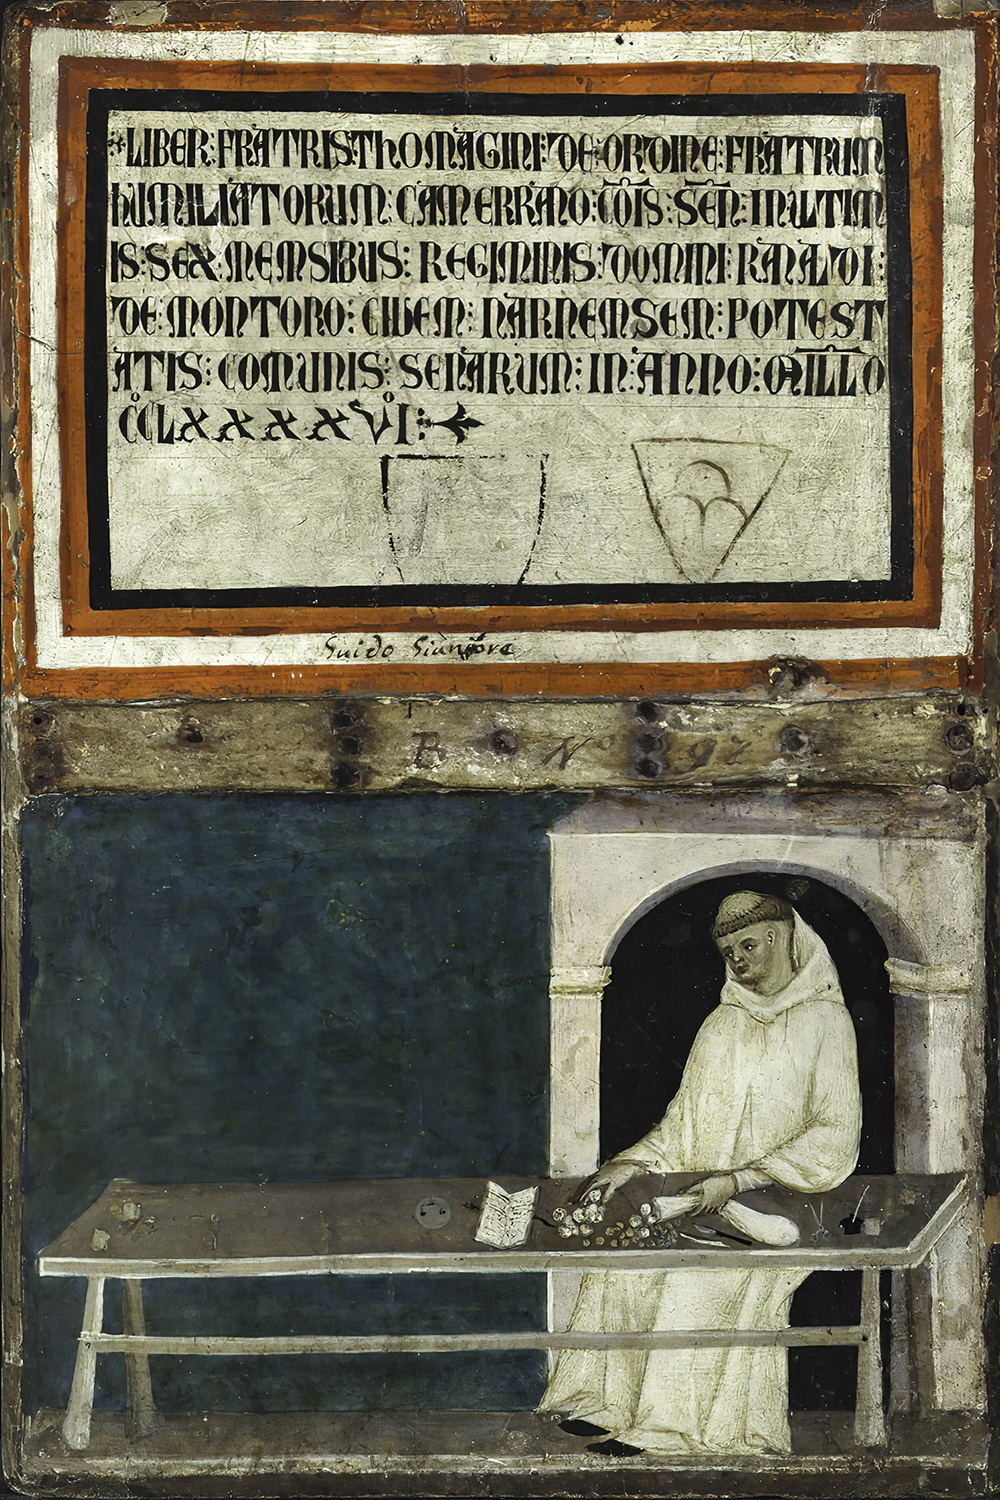 LIBER:FRATRIS:THOMAGINI:DE:ORDINE:FRATRUM
HUMILIATORUM:CAMERRARIO:COIS:SEN:IN ULTIM
IS:SEX:MENSIBUS:REGIMINIS:DOMINI:RANALDI:
DE:MONTORO:CIVEM:NARNENSEM:POTEST
ATIS:COMUNIS:SENARUM:IN:ANNO:MILLO
CCLXXXXVI:
Guido
B N° 92